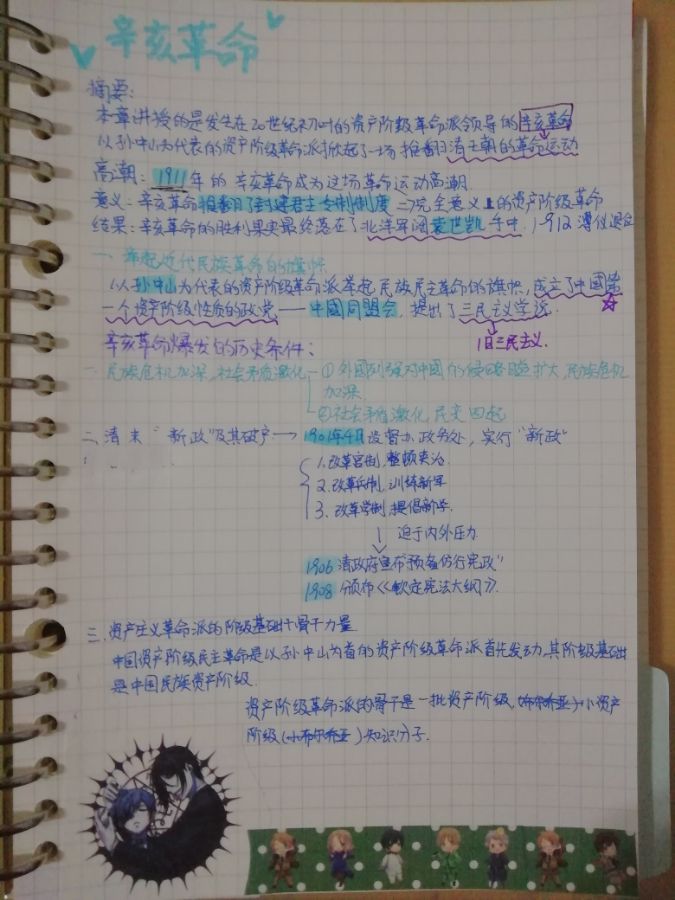 辛亥革命
摘要:
本章讲授的是发生在20世纪初叶的资产阶级革命派领导的辛亥革命
以孙中山为代表的资产阶级革命派掀起了一场推翻清王朝的革命运动
高潮:1911年的辛亥革命成为这场革命运动高潮.
意义:辛亥革命推翻了封建君主专制制度 完全意义上的资产阶级革命
结果:辛亥革命的胜利果实最终落在了北洋军阀袁世凯手中. 1912 溥仪退位
一 举起近代民族革命的旗帜
以孙中山为代表的资产阶级革命派举起民族民主革命的旗帜,成立了中国第
一个资产阶级性质的政党——中國同盟会,提出了三民主义学说.
旧三民主义.
辛亥革命爆发的历史条件:
一 民族危机加深,社会矛盾激化—①外國列强对中國的侵略日益扩大,民族危机
加深.
②社会矛盾激化 民变四起
二.清末"新政"及其破产→1901年4月设督办政务处,实行"新政"
1.改革官制,整顿吏治.
2.改革兵制,训练新军
3.改革学制,提倡新学.
迫于内外压力
1906 清政府宣布"预备仿行宪政"
1908 颁布《钦定宪法大纲》.
三.资产主义革命派的阶级基础+骨干力量
中国资产阶级民主革命是以孙中山为首的资产阶级革命派首先发动,其阶级基础
是中国民族资产阶级.
资产阶级革命派的骨干是一批资产阶级,小资产
阶级(小布尔乔亚)知识分子.